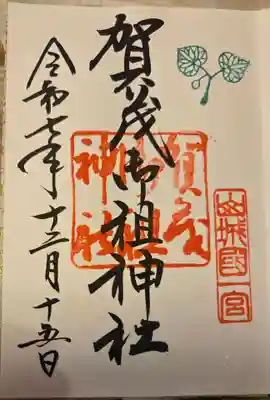 山城國一宮
賀茂御祖神社
賀茂
御祖
神社
令和七年十二月十五日